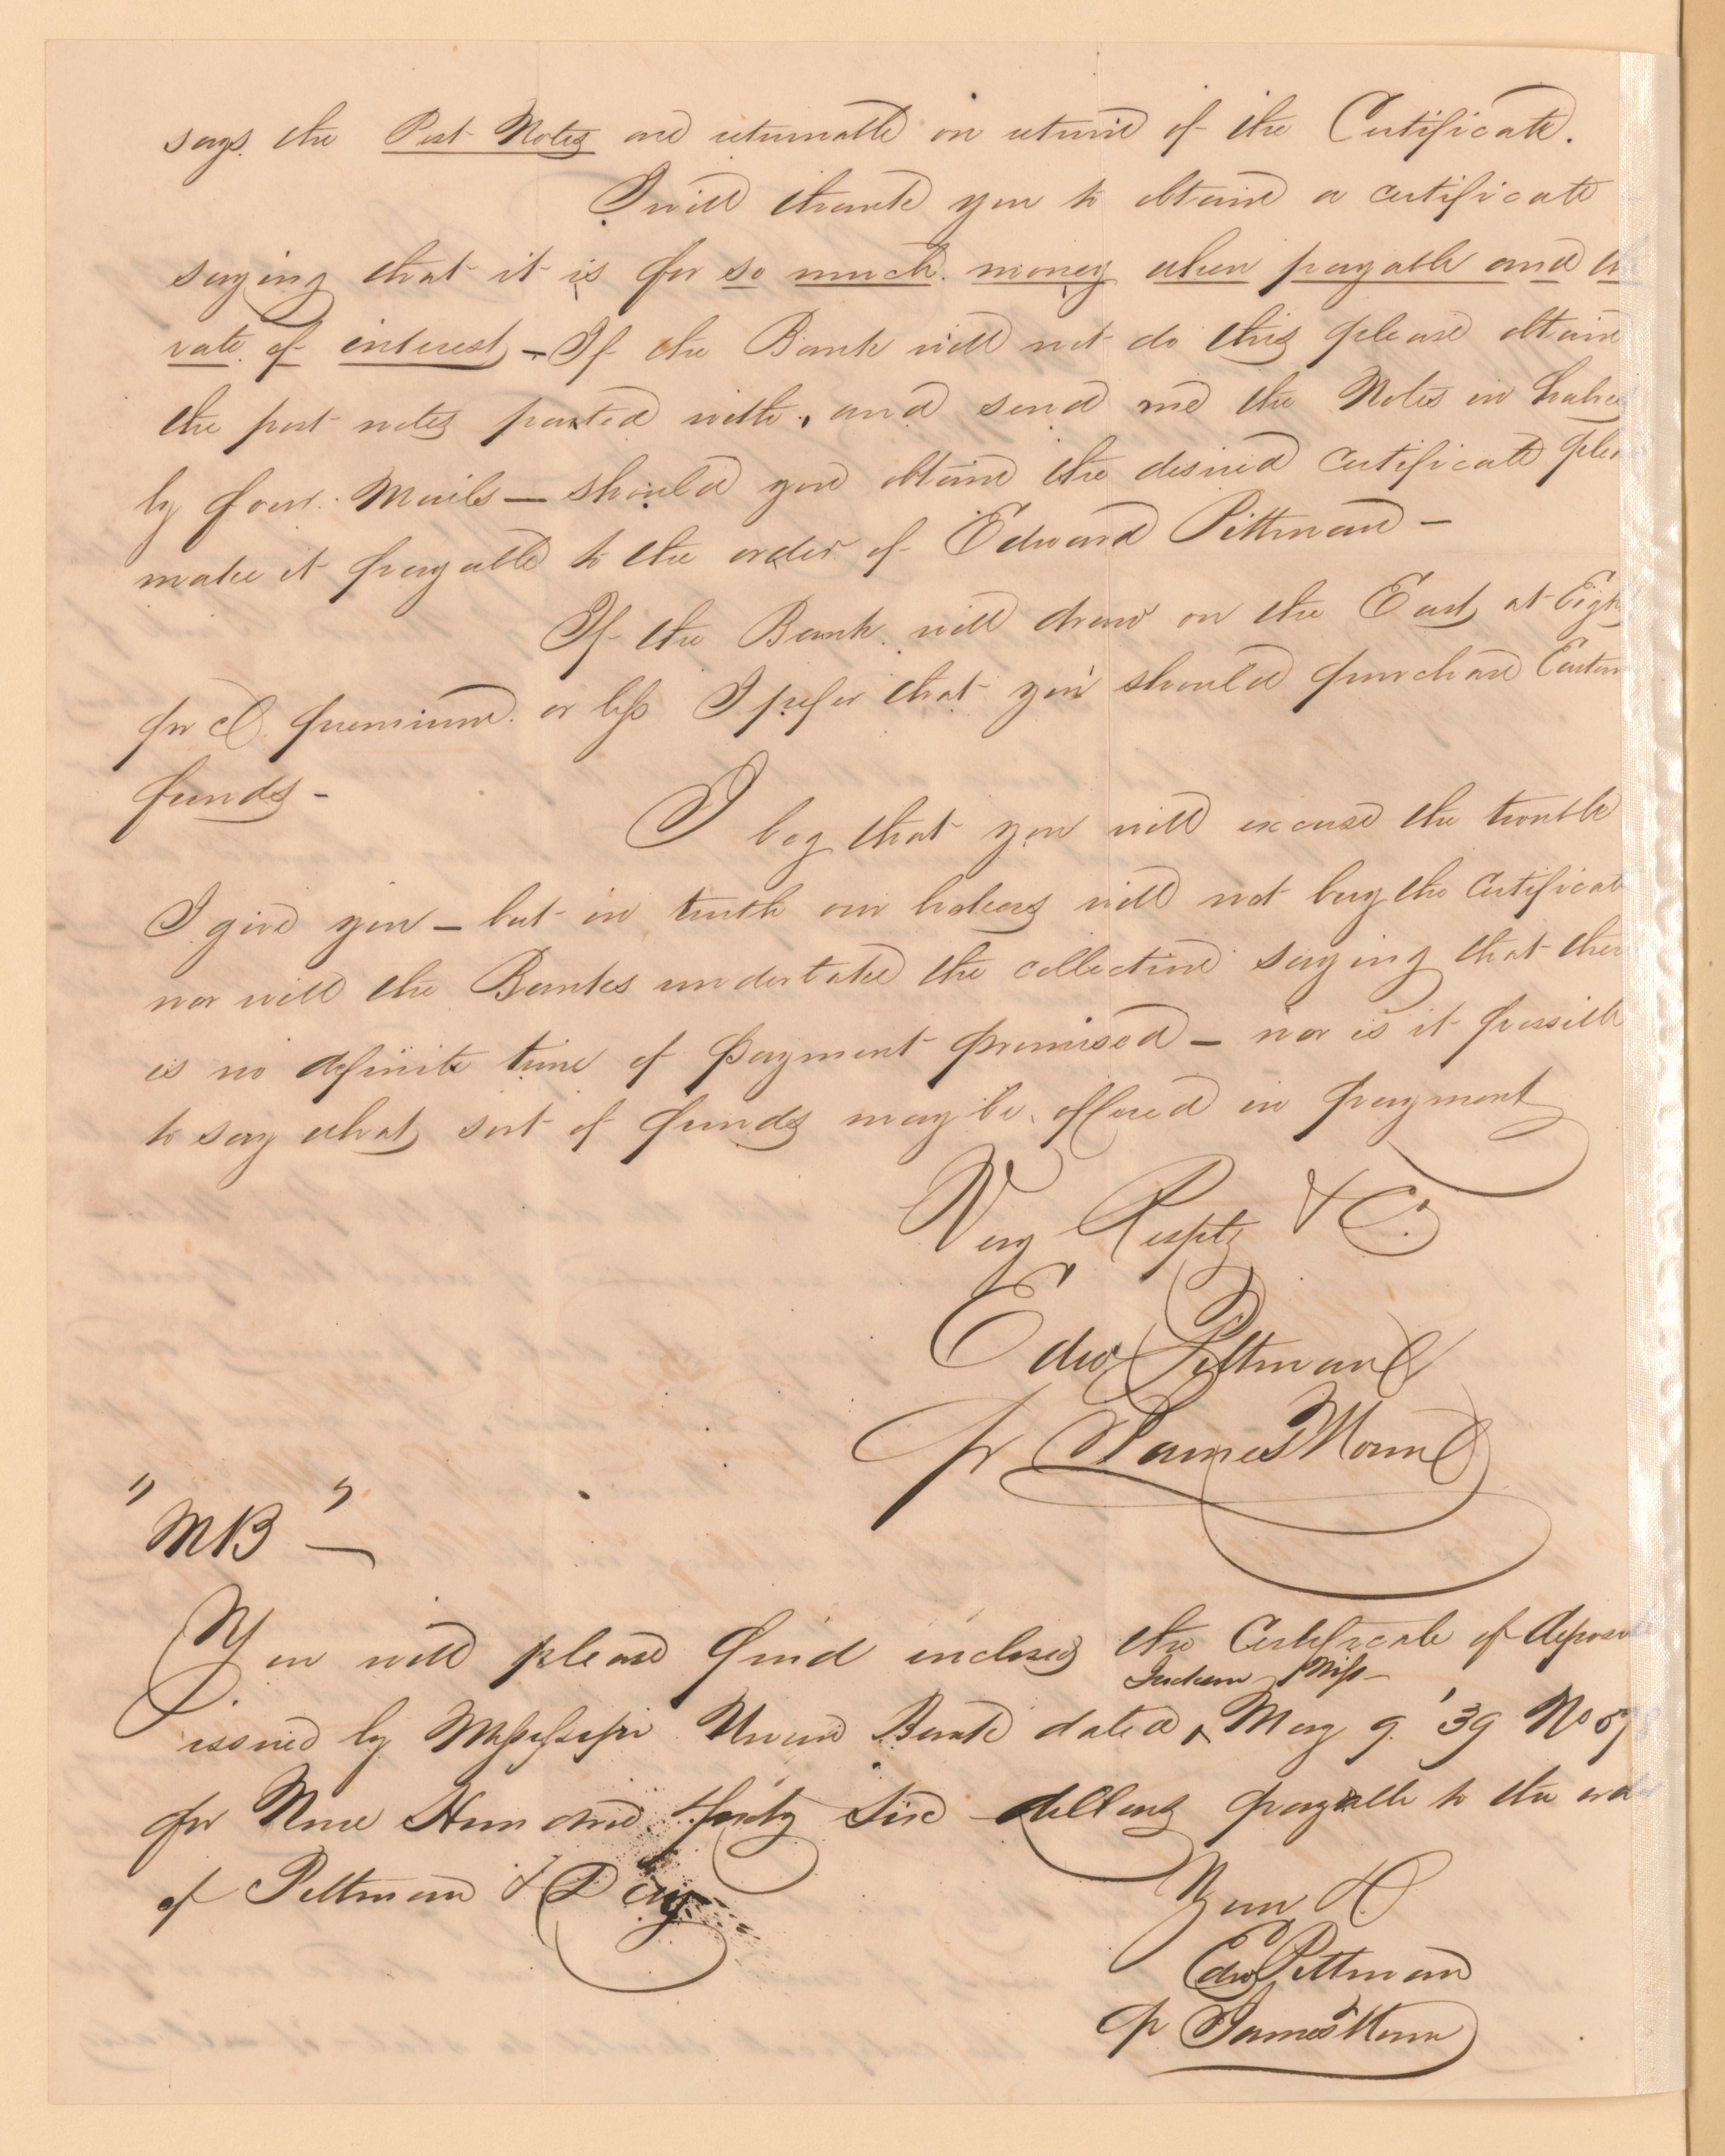 says the Post Notes are returnable on return of the Certificate.
I will thank you to obtain a certificate
saying that it is for so much money when payable and the
rate of interest – If the Bank will not do this please obtain
the post notes parted with, and send me the Notes in halves
by four Mails — should you obtain the desired certificate please
make it payable to the order of Edward Pittman –
If the Bank will draw on the East at Eight
pr Ct. premium or less I prefer that you should purchase Eastern
funds –
I beg that you will excuse the trouble
I give you – but in truth our brokers will not buy the Certificate
nor will the Banks undertake the collection saying that there
is no definite time of payment promised – nor is it possible
to say what sort of funds may be offered in payment
Very Resptly &C.
Edw Pittman
pr James
"NB" —
You will please find inclosed the Certificate of deposit
Miss –
issued by Mississippi Union Bank dated ^ May 9. '39 No
for Nine Hundred forty Six dollars payable to the order
of Pittman & Day
Your &
Edw Pittman
pr James